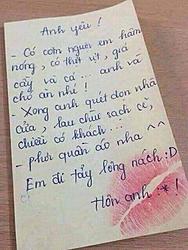 Anh yêu!
- Có cơm người em hâm
nóng, có thịt vịt, giá
cầy và cá... anh và
chó ăn nhé!
- Xong anh quét dọn nhà
cửa, lau chùi sạch sẽ,
chiều có khách...
- phơi quần áo nha ^^
Em đi tẩy lông nách :D
Hôn anh :*!